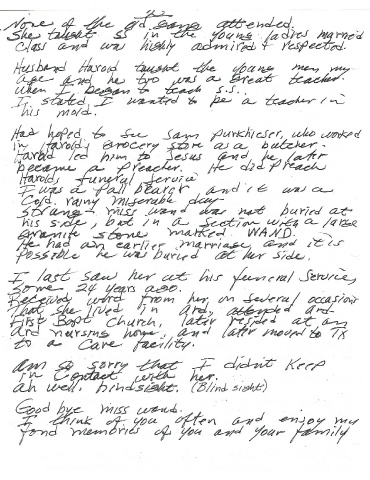 None of the old gang attended.
She taught SS in the young ladies married
class and was highly admired & respected.
Husband Harold taught the young men my
age and he two was a great teacher.
When I began to teach S.S.
I stated I wanted to be a teacher in
his mold.
Had hoped to see Sam Purkhieser, who worked
in Harolds grocery store as a butcher.
Harold led him to Jesus and he later
became a Preacher. He did preach
Harolds funeral service
I was a pall bearer and it was a
cold, rainy miserable day
Strange miss wand was not buried at
his side, but in a section with a large
granite stone marked WAND.
He had an earlier marriage and it is
possible he was buried at her side.
I last saw her at his funeral service,
some 24 years ago.
Received word from her on several occasions
that she lived in Ard, attended Ard
First Bapt Church, later resided at an
Ard nursing home, and later moved to TX
to a care facility.
Am so sorry that I didn't keep
in contact with her.
ah well, hindsight. (Blind sight)
Good bye miss wand.
I think of you often and enjoy my
fond memories of you and your family